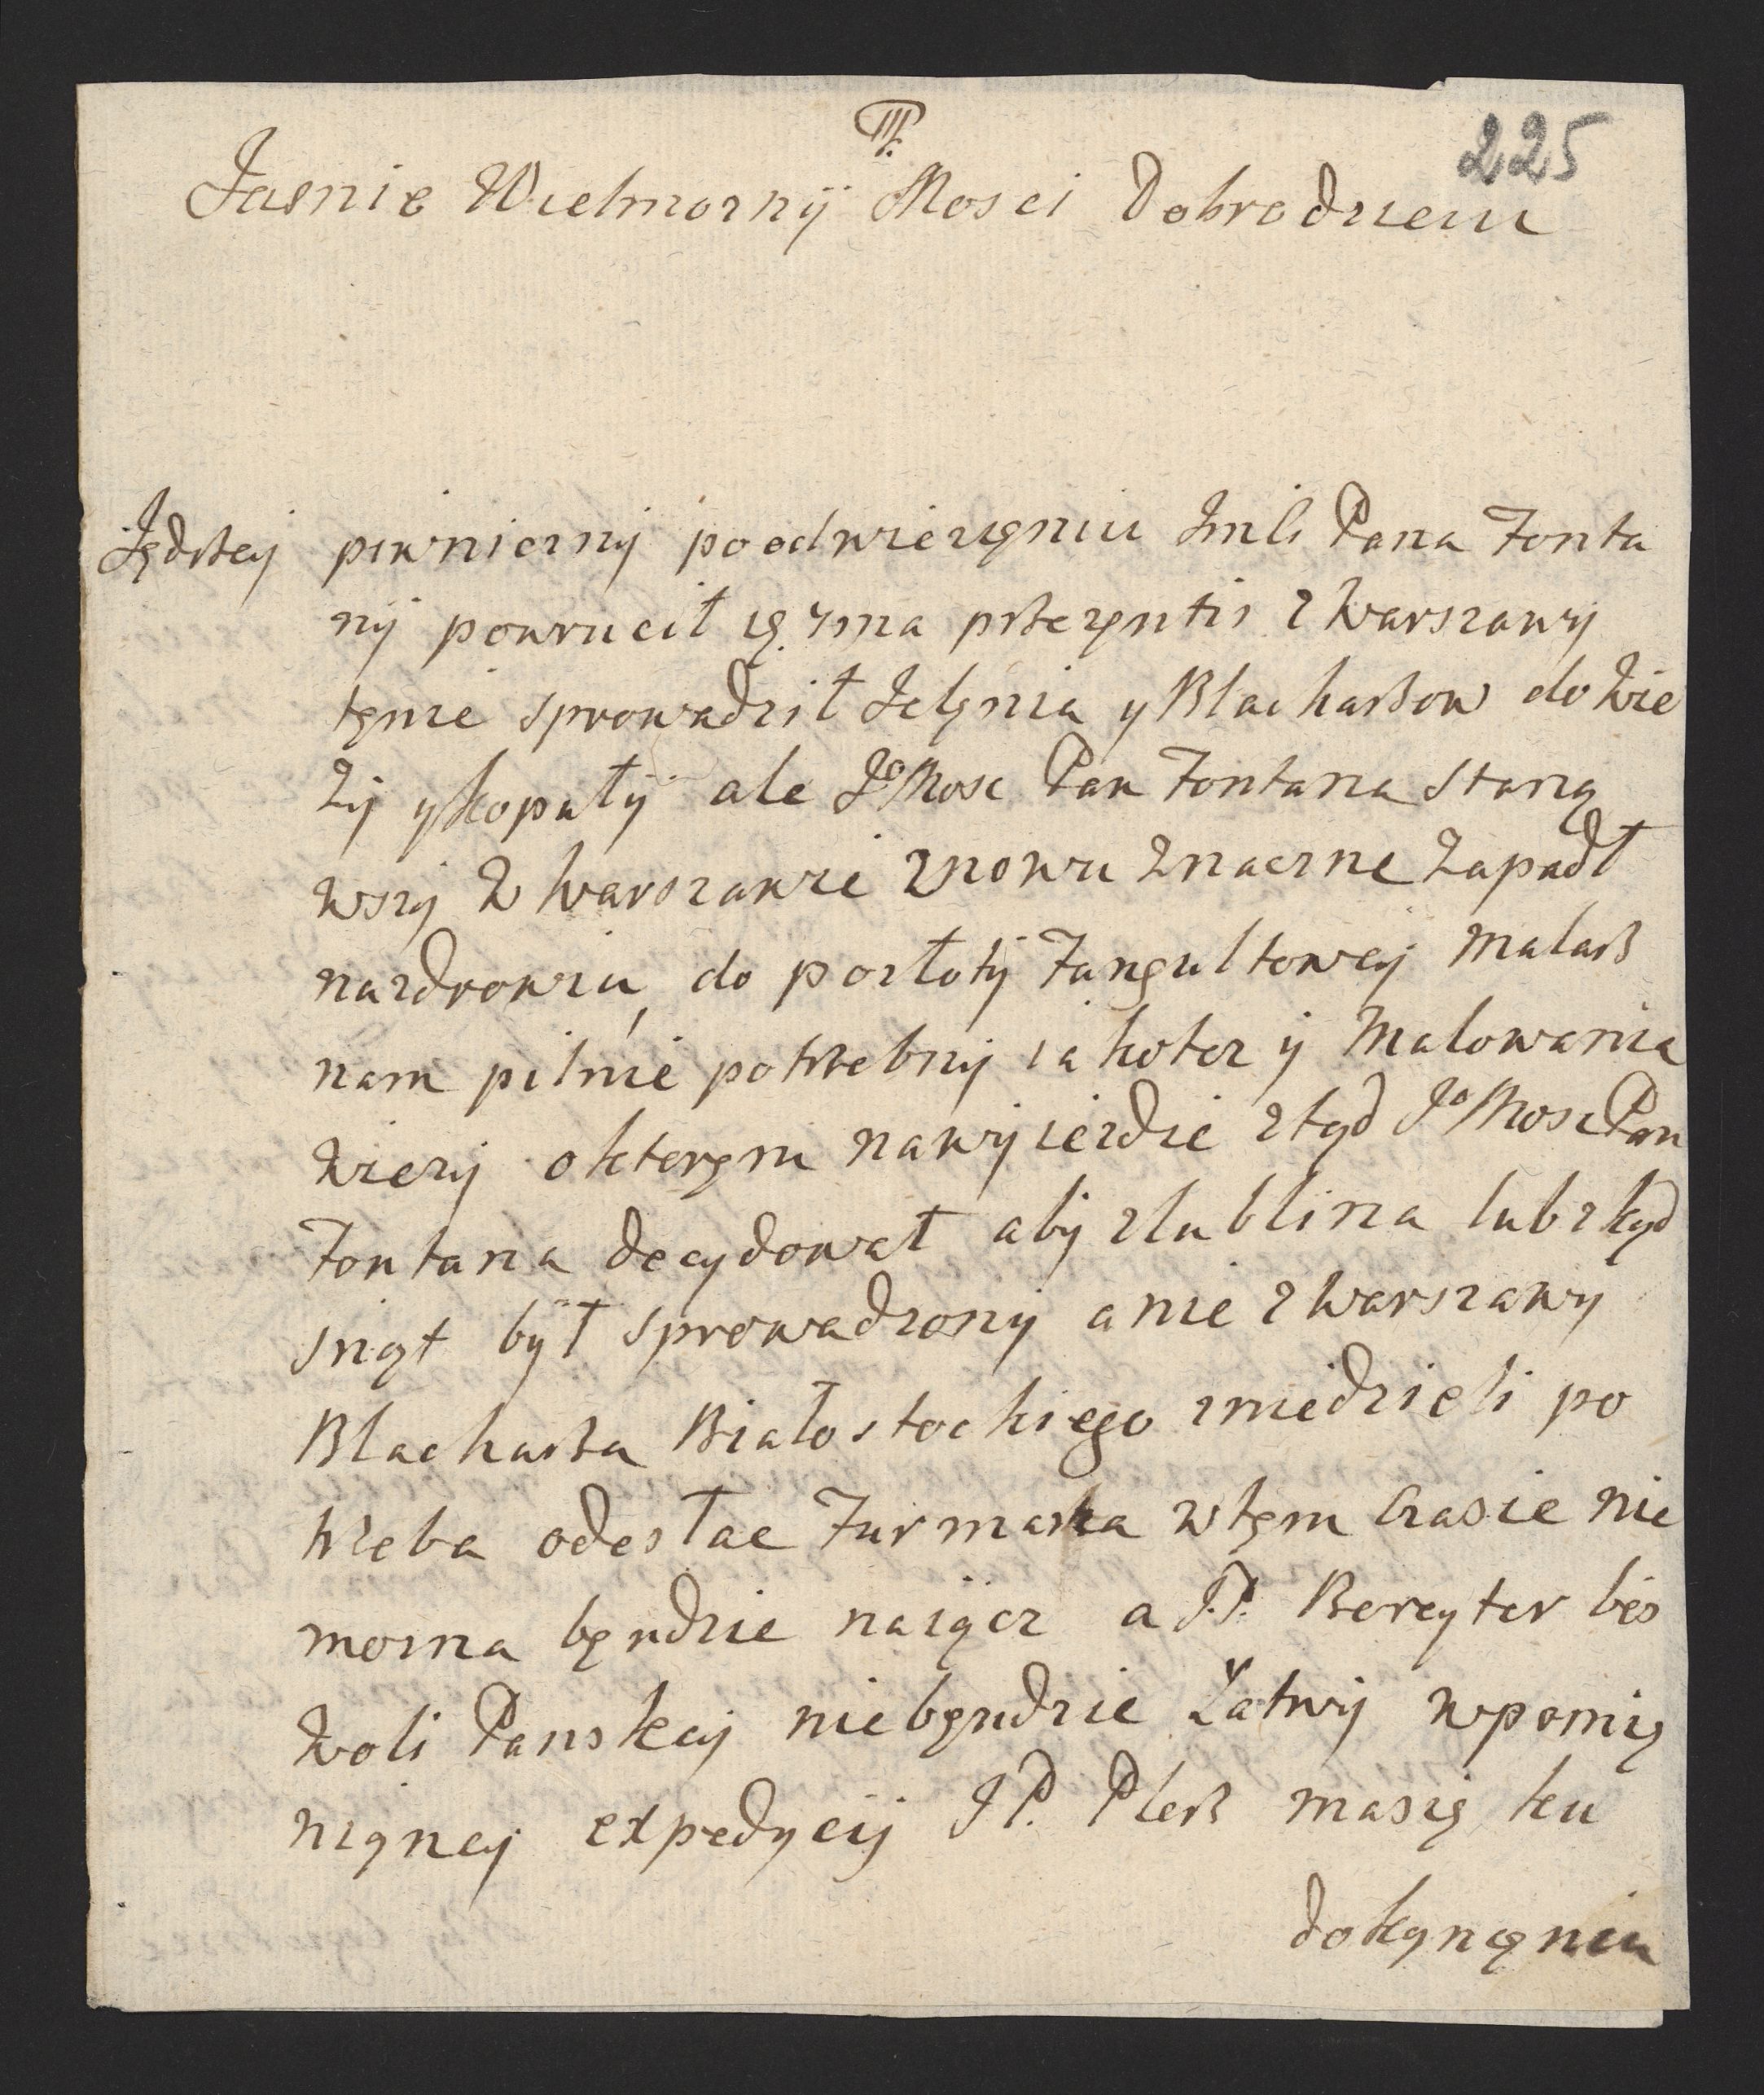 225
Jasnie Wielmozny Mosci Dobrodzieiu
Jędrzej piwniczny po odwiezięniu Jmsci Pana Fonta
ny powrucił
tęnie sprowadził Jelęnia y Blacharzow do Wie
zy y kopuły ale JoMosc Pan Fontana Staną
wszy w Warszawie znowu znaczne zapadł
na zdrowiu, do pozłoty Fangultowey malarz
nam pilnie potrzebny iakotez y Malowania
Wiezy o kterym na wyiezdie ztąd JoMosc Pan
Fontana decydował aby z Lublina lub zkąd
inąt był sprowadzony a nie z Warszawy
Blacharza Białostockiego z miedzieli po
trzeba odesłac Furmanka w tem czasie nie
mozna będzie naiącz a JP. Bereyter bes
woli Panskey nie będzie Łatwy wpomię
nięney expedycij JP. Plerz ma się ku
dokęnęniu